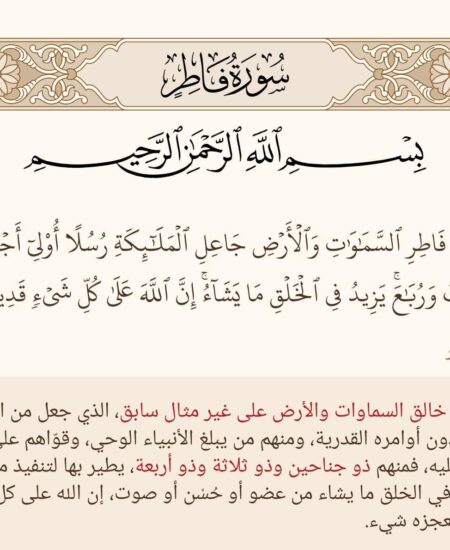 سُورَةُ فَاطِرٍ
بِسْمِ ٱللَّهِ ٱلرَّحْمَٰنِ ٱلرَّحِيمِ
فَاطِرِ ٱلسَّمَٰوَٰتِ وَٱلْأَرْضِ جَاعِلِ ٱلْمَلَٰٓئِكَةِ رُسُلًا أُو۟لِىٓ
وَرُبَٰعَ ۚ يَزِيدُ فِى ٱلْخَلْقِ مَا يَشَآءُ ۚ إِنَّ ٱللَّهَ عَلَىٰ كُلِّ شَىْءٍ
خالق السماوات والأرض على غير مثال سابق، الذي جعل من
أوامره القدرية، ومنهم من يبلغ الأنبياء الوحي، وقوّاهم
فمنهم ذو جناحين وذو ثلاثة وذو أربعة، يطير بها لتنفيذ
في الخلق ما يشاء من عضو أو حُسْن أو صوت، إن الله على كل
شيء.